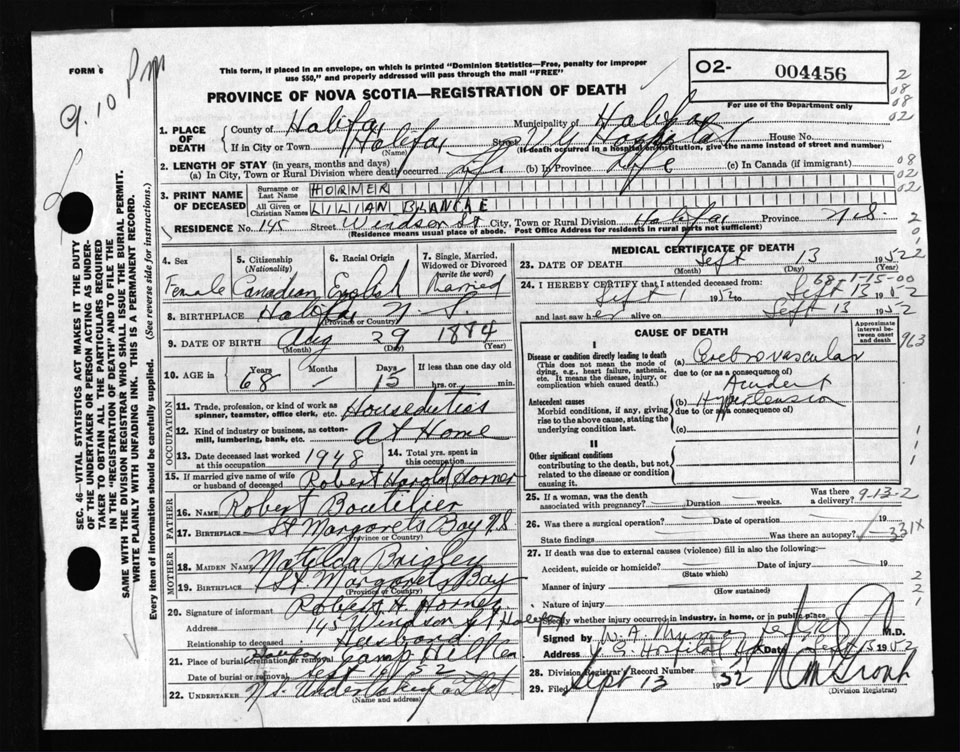 FORM 6
9.10 Pm
This form, if placed in an envelope, on which is printed "Dominion Statistics—Free, penalty for improper
use $50," and properly addressed will pass through the mail "FREE"
PROVINCE OF NOVA SCOTIA—REGISTRATION OF DEATH
02- 004456
For use of the Department only
2
08
08
02
1. PLACE OF DEATH
County of Halifax Municipality of Halifax
If in City or Town Halifax Street V G Hospital House No.
(Name) (If death occurred in a hospital or institution, give the name instead of street and number)
2. LENGTH OF STAY (in years, months and days)
(a) In City, Town or Rural Division where death occurred Life (b) In Province Life (c) In Canada (if immigrant)
08
02
3. PRINT NAME OF DECEASED
Surname or Last Name HORNER
All Given or Christian Names LILIAN BLANCHE
RESIDENCE No. 145 Street Windsor St City, Town or Rural Division Halifax Province N.S.
(Residence means usual place of abode. Post Office Address for residents in rural parts not sufficient)
4. Sex Female
5. Citizenship (Nationality) Canadian
6. Racial Origin English
7. Single, Married, Widowed or Divorced (write the word) Married
8. BIRTHPLACE Halifax N.S.
(Province or Country)
9. DATE OF BIRTH Aug 29 1884
(Month) (Day) (Year)
10. AGE in Years 68 Months - Days 15 If less than one day old
hrs. or min.
OCCUPATION
11. Trade, profession, or kind of work as
spinner, teamster, office clerk, etc. Houseduties
12. Kind of industry or business, as cotton-
mill, lumbering, bank, etc. At Home
13. Date deceased last worked at this occupation 1948
14. Total yrs. spent in this occupation
15. If married give name of wife or husband of deceased Robert Harold Horner
FATHER
16. Name Robert Boutilier
17. Birthplace St Margarets Bay N.S
(Province or Country)
MOTHER
18. MAIDEN NAME Matilda Brigley
19. BIRTHPLACE St Margarets Bay
(Province or Country)
20. Signature of informant Robert H. Horner
Address 145 Windsor St Halifax
Relationship to deceased Husband
21. Place of burial, cremation or removal Halifax Camp Hill Cem
Date of burial or removal Sept
22. UNDERTAKER N.S. Undertaking Co Ltd
(Name and address)
MEDICAL CERTIFICATE OF DEATH
23. DATE OF DEATH Sept 13 1952
(Month) (Day) (Year)
68-1-15-00
24. I HEREBY CERTIFY that I attended deceased from:
Sept 1 1952 to Sept 13 1952
and last saw her alive on Sept 13 1952
CAUSE OF DEATH
Approximate interval between onset and death
963
I
Disease or condition directly leading to death
(This does not mean the mode of dying, e.g., heart failure, asthenia, etc. It means the disease, injury, or complication which caused death.)
(a) Cerebrovascular
due to (or as a consequence of)
Accident
Antecedent causes
Morbid conditions, if any, giving rise to the above cause, stating the underlying condition last.
(b) Hypertension
due to (or as a consequence of)
(c)
II
Other significant conditions
contributing to the death, but not related to the disease or condition causing it.
25. If a woman, was the death associated with pregnancy? Duration weeks. Was there a delivery?
9-13-2
26. Was there a surgical operation? Date of operation 19
State findings Was there an autopsy?
331X
27. If death was due to external causes (violence) fill in also the following:
Accident, suicide or homicide? Date of injury 19
(State which)
Manner of injury
(How sustained)
Nature of injury
Specify whether injury occurred in industry, in home, or in public place
Signed by W. A. M.D.
Address V. G. Hospital Date Sept 15 1952
28. Division Registrar's Record Number
29. Filed Sept 13 1952
(Division Registrar)
SEC. 46—VITAL STATISTICS ACT MAKES IT THE DUTY
OF THE UNDERTAKER OR PERSON ACTING AS UNDER-
TAKER TO OBTAIN ALL THE PARTICULARS REQUIRED
IN THE "REGISTRATION OF DEATH" AND TO FILE THE
SAME WITH THE DIVISION REGISTRAR WHO SHALL ISSUE THE BURIAL PERMIT.
WRITE PLAINLY WITH UNFADING INK. THIS IS A PERMANENT RECORD.
Every item of information should be carefully supplied. (See reverse side for instructions.)